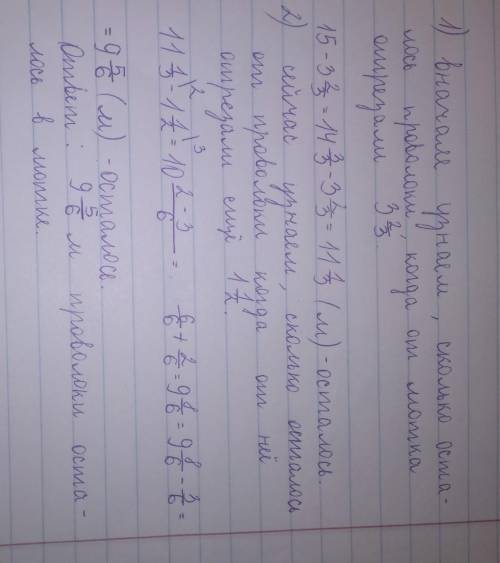 1) вначале узнаем, сколько оста-
лось проволоки, когда от мотка
отрезали 3 2/3.
15 - 3 2/3 = 14 3/3 - 3 2/3 = 11 1/3 (м) - осталось.
2) сейчас узнаем, сколько осталось
от проволоки когда от неё
отрезали ещё 1 1/2.
11 1/3\2 - 1 1/2\3 = 10 2-3/6 = 6/6 + 2/6 = 9 8/6 = 9 8/6 - 3/6 =
= 9 5/6 (м) - осталось.
Ответ: 9 5/6 м проволоки оста-
лось в мотке.